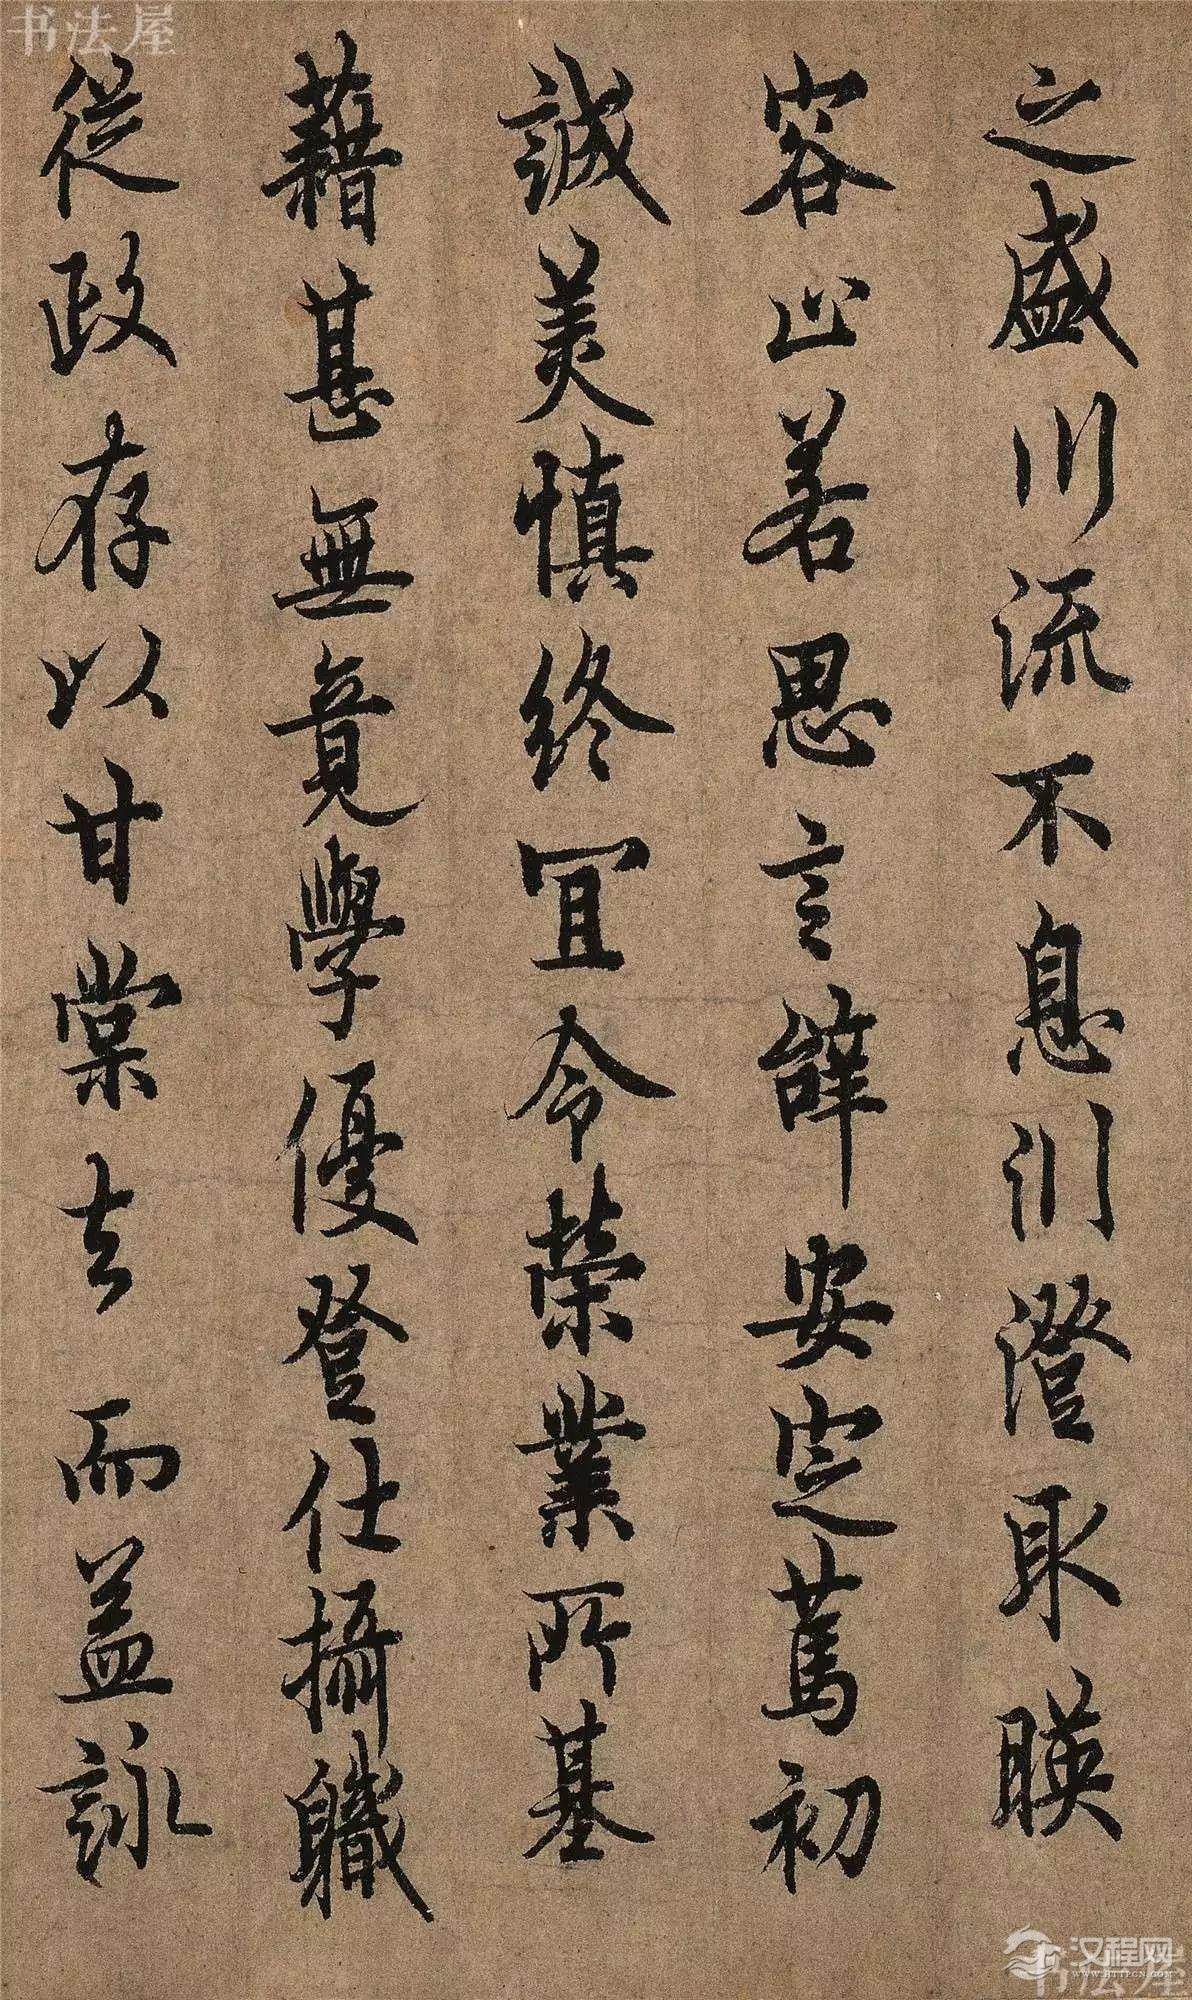 书法屋
之盛川流不息渊澄取暎
容止若思言辞安定篤初
誠美慎終宜令榮業所基
藉甚無竟學優登仕攝軄
從政存以甘棠去而益詠
汉程网
WWW.HTTPCN.COM
书法屋